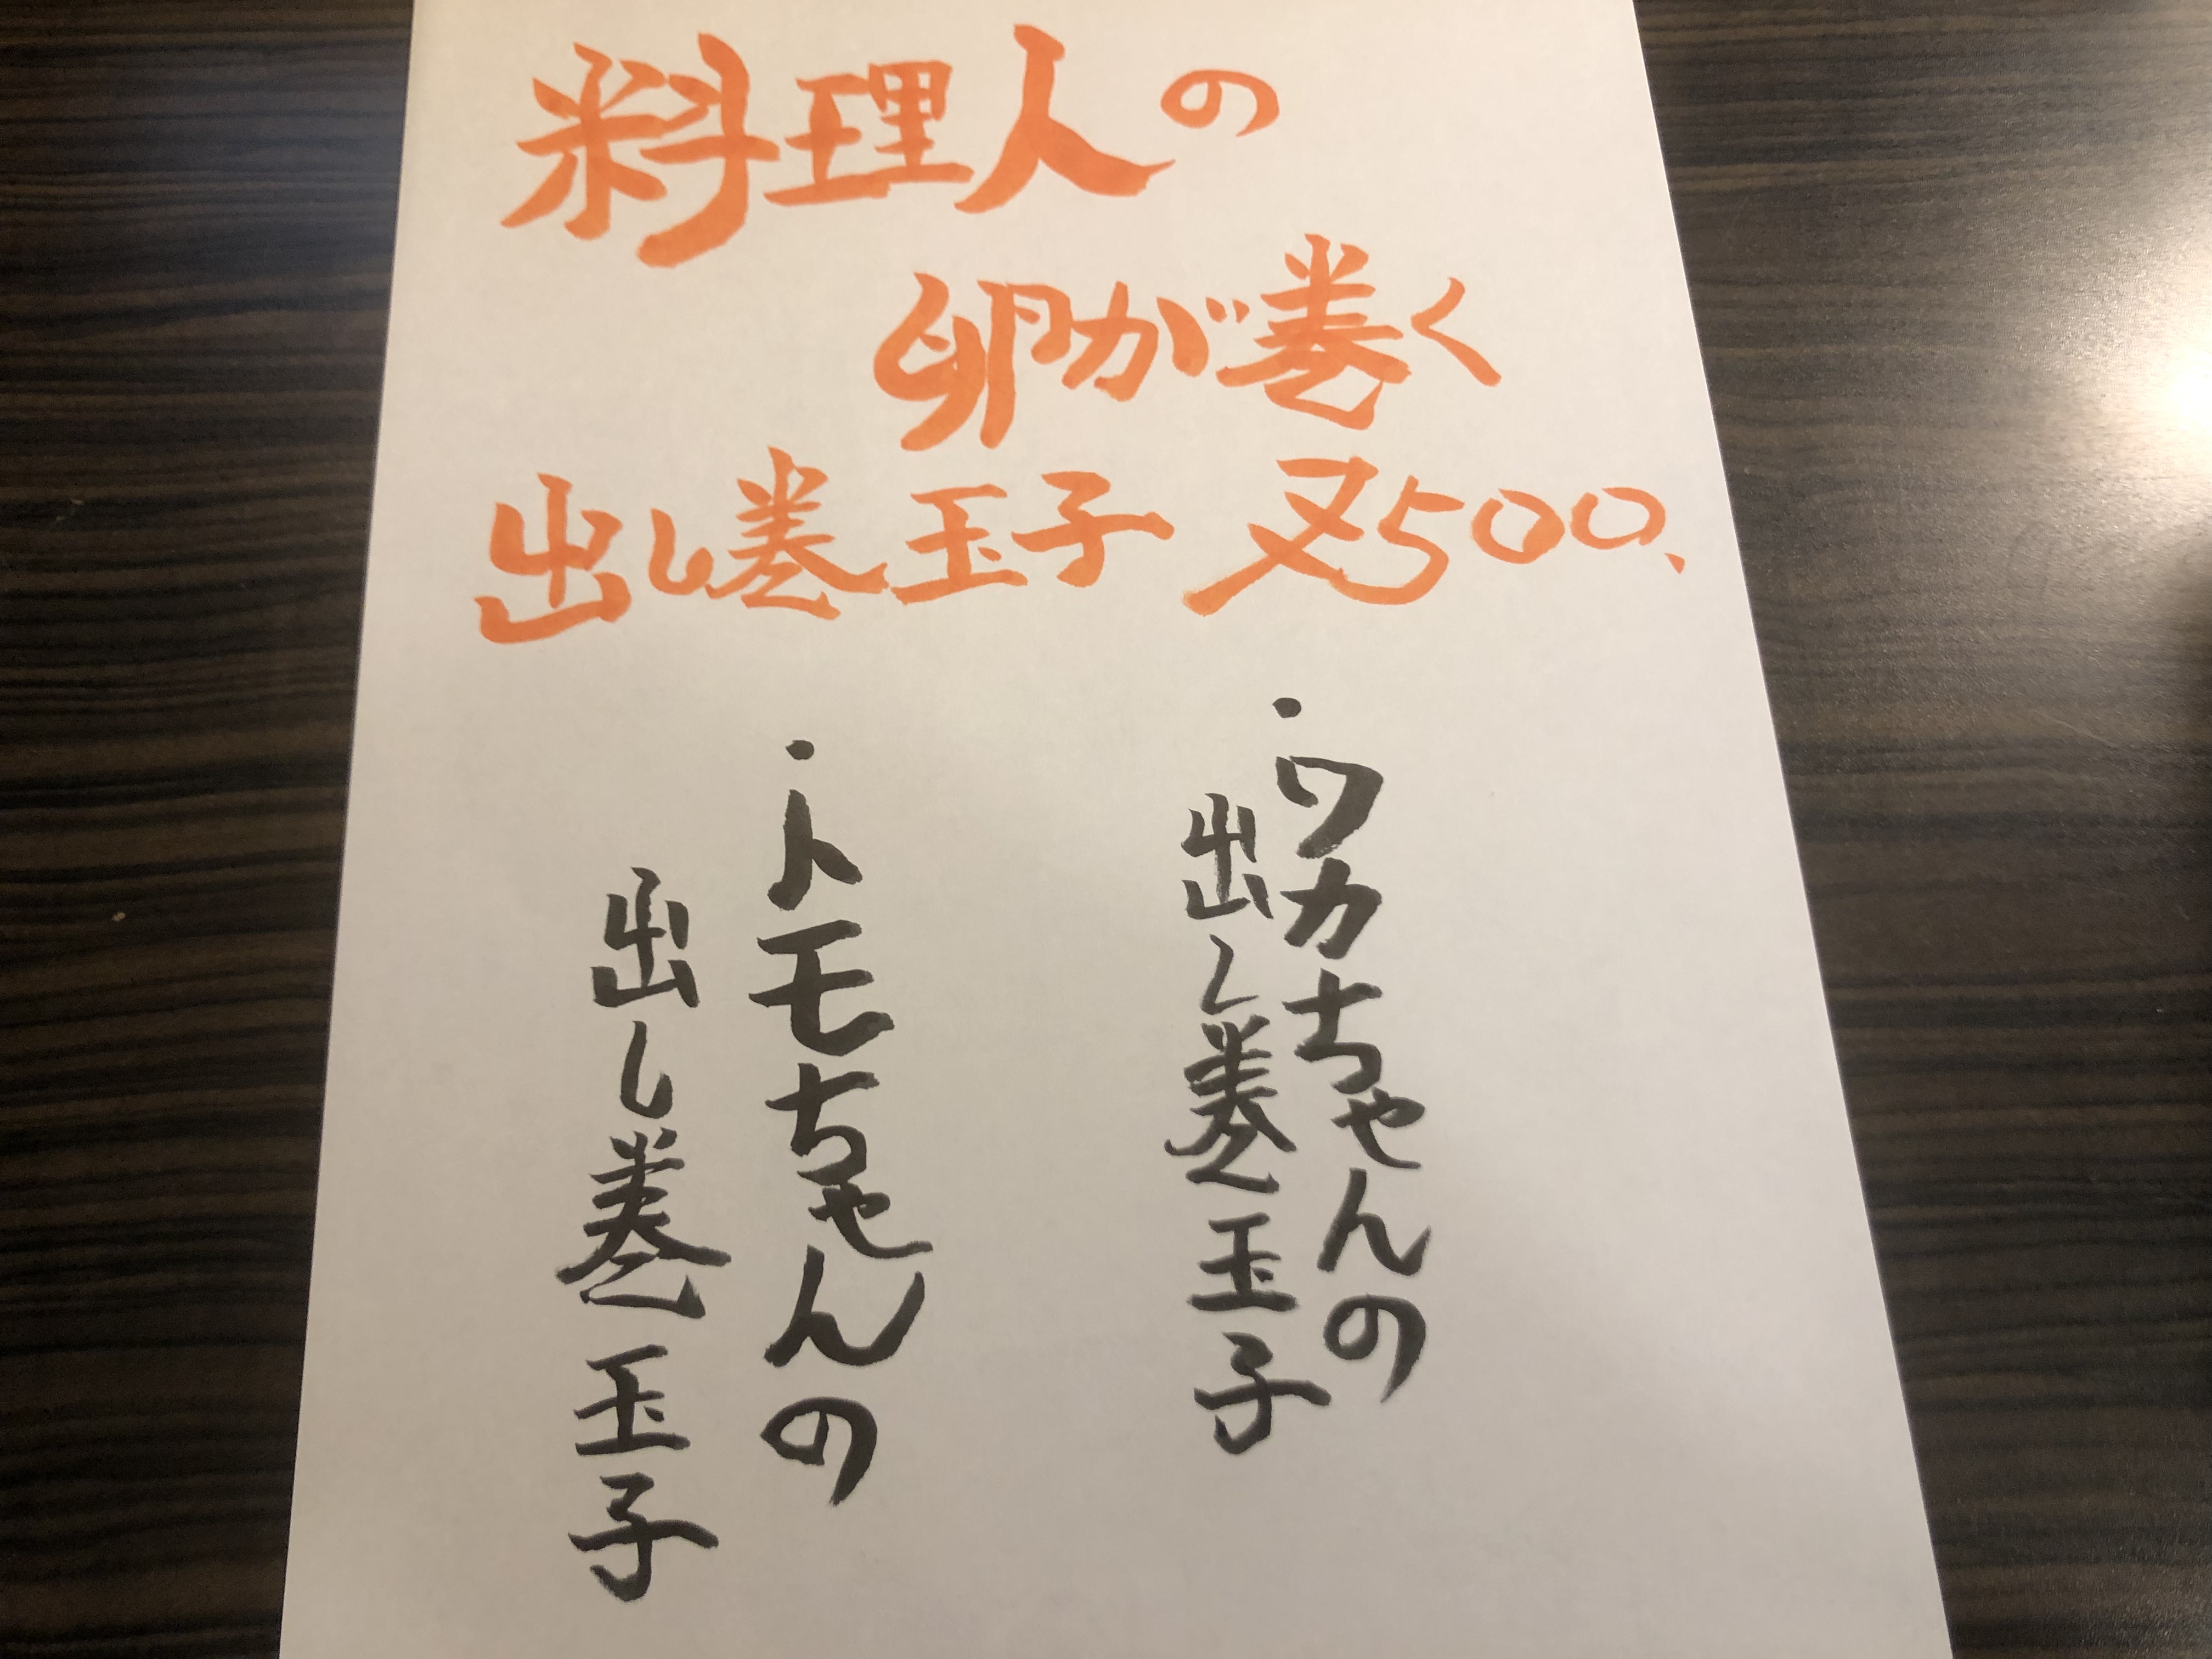 料理人の
卵が巻く
出し巻玉子 又500、
・ワカちゃんの
出し巻玉子
・トモちゃんの
出し巻玉子